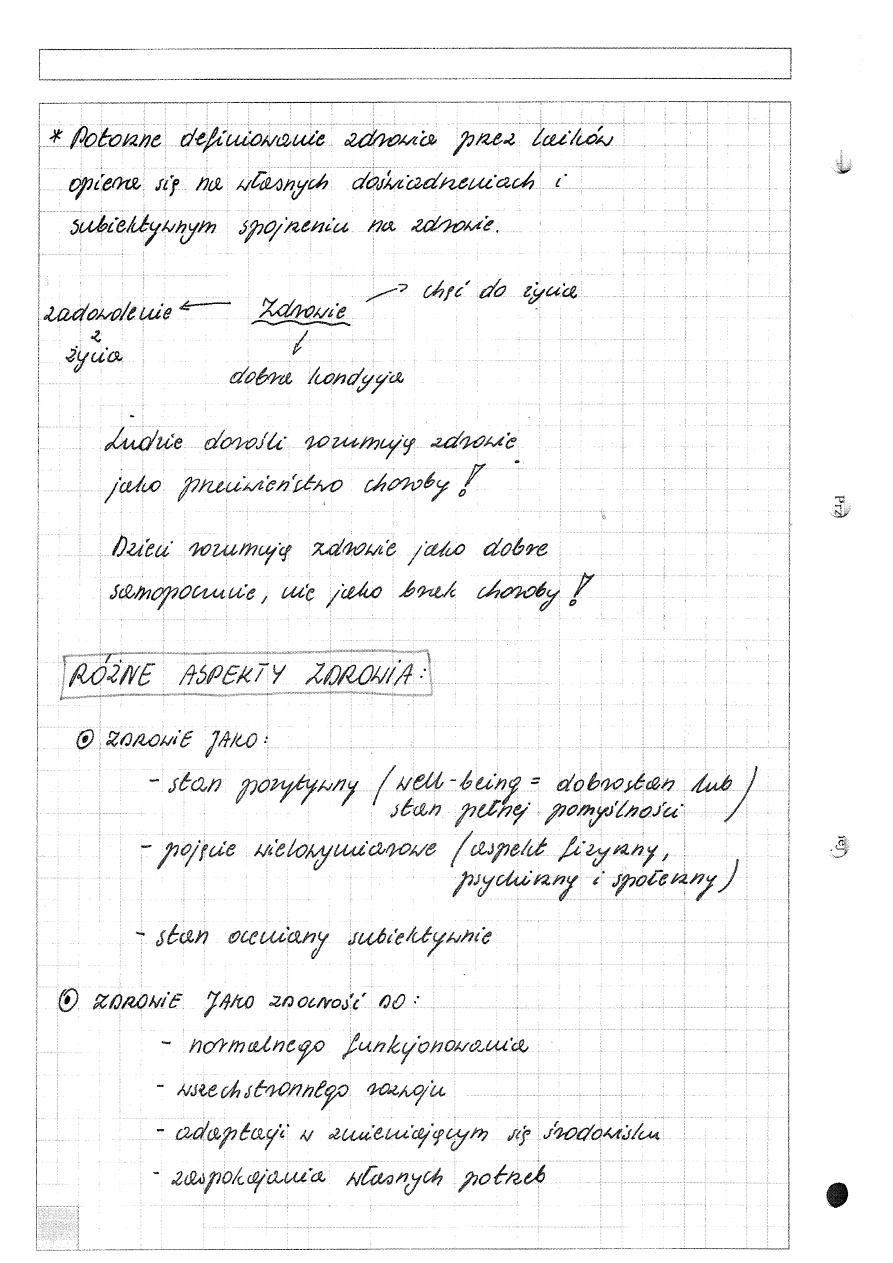 * Potoczne definiowanie zdrowia przez laików
opiera się na własnych doświadczeniach i
subiektywnym spojrzeniu na zdrowie.
zadowolenie ← Zdrowie → chęć do życia
z
życia
↓
dobra kondycja
Ludzie dorośli rozumują zdrowie
jako przeciwieństwo choroby!
Dzieci rozumują zdrowie jako dobre
samopoczucie, nie jako brak choroby!
RÓŻNE ASPEKTY ZDROWIA:
ZDROWIE JAKO:
- stan pozytywny (well-being = dobrostan lub
stan pełnej pomyślności)
- pojęcie wielowymiarowe (aspekt fizyczny,
psychiczny i społeczny)
- stan oceniany subiektywnie
ZDROWIE JAKO ZDOLNOŚĆ DO:
- normalnego funkcjonowania
- wszechstronnego rozwoju
- adaptacji w zmieniającym się środowisku
- zaspokajania własnych potrzeb
Prz
iej